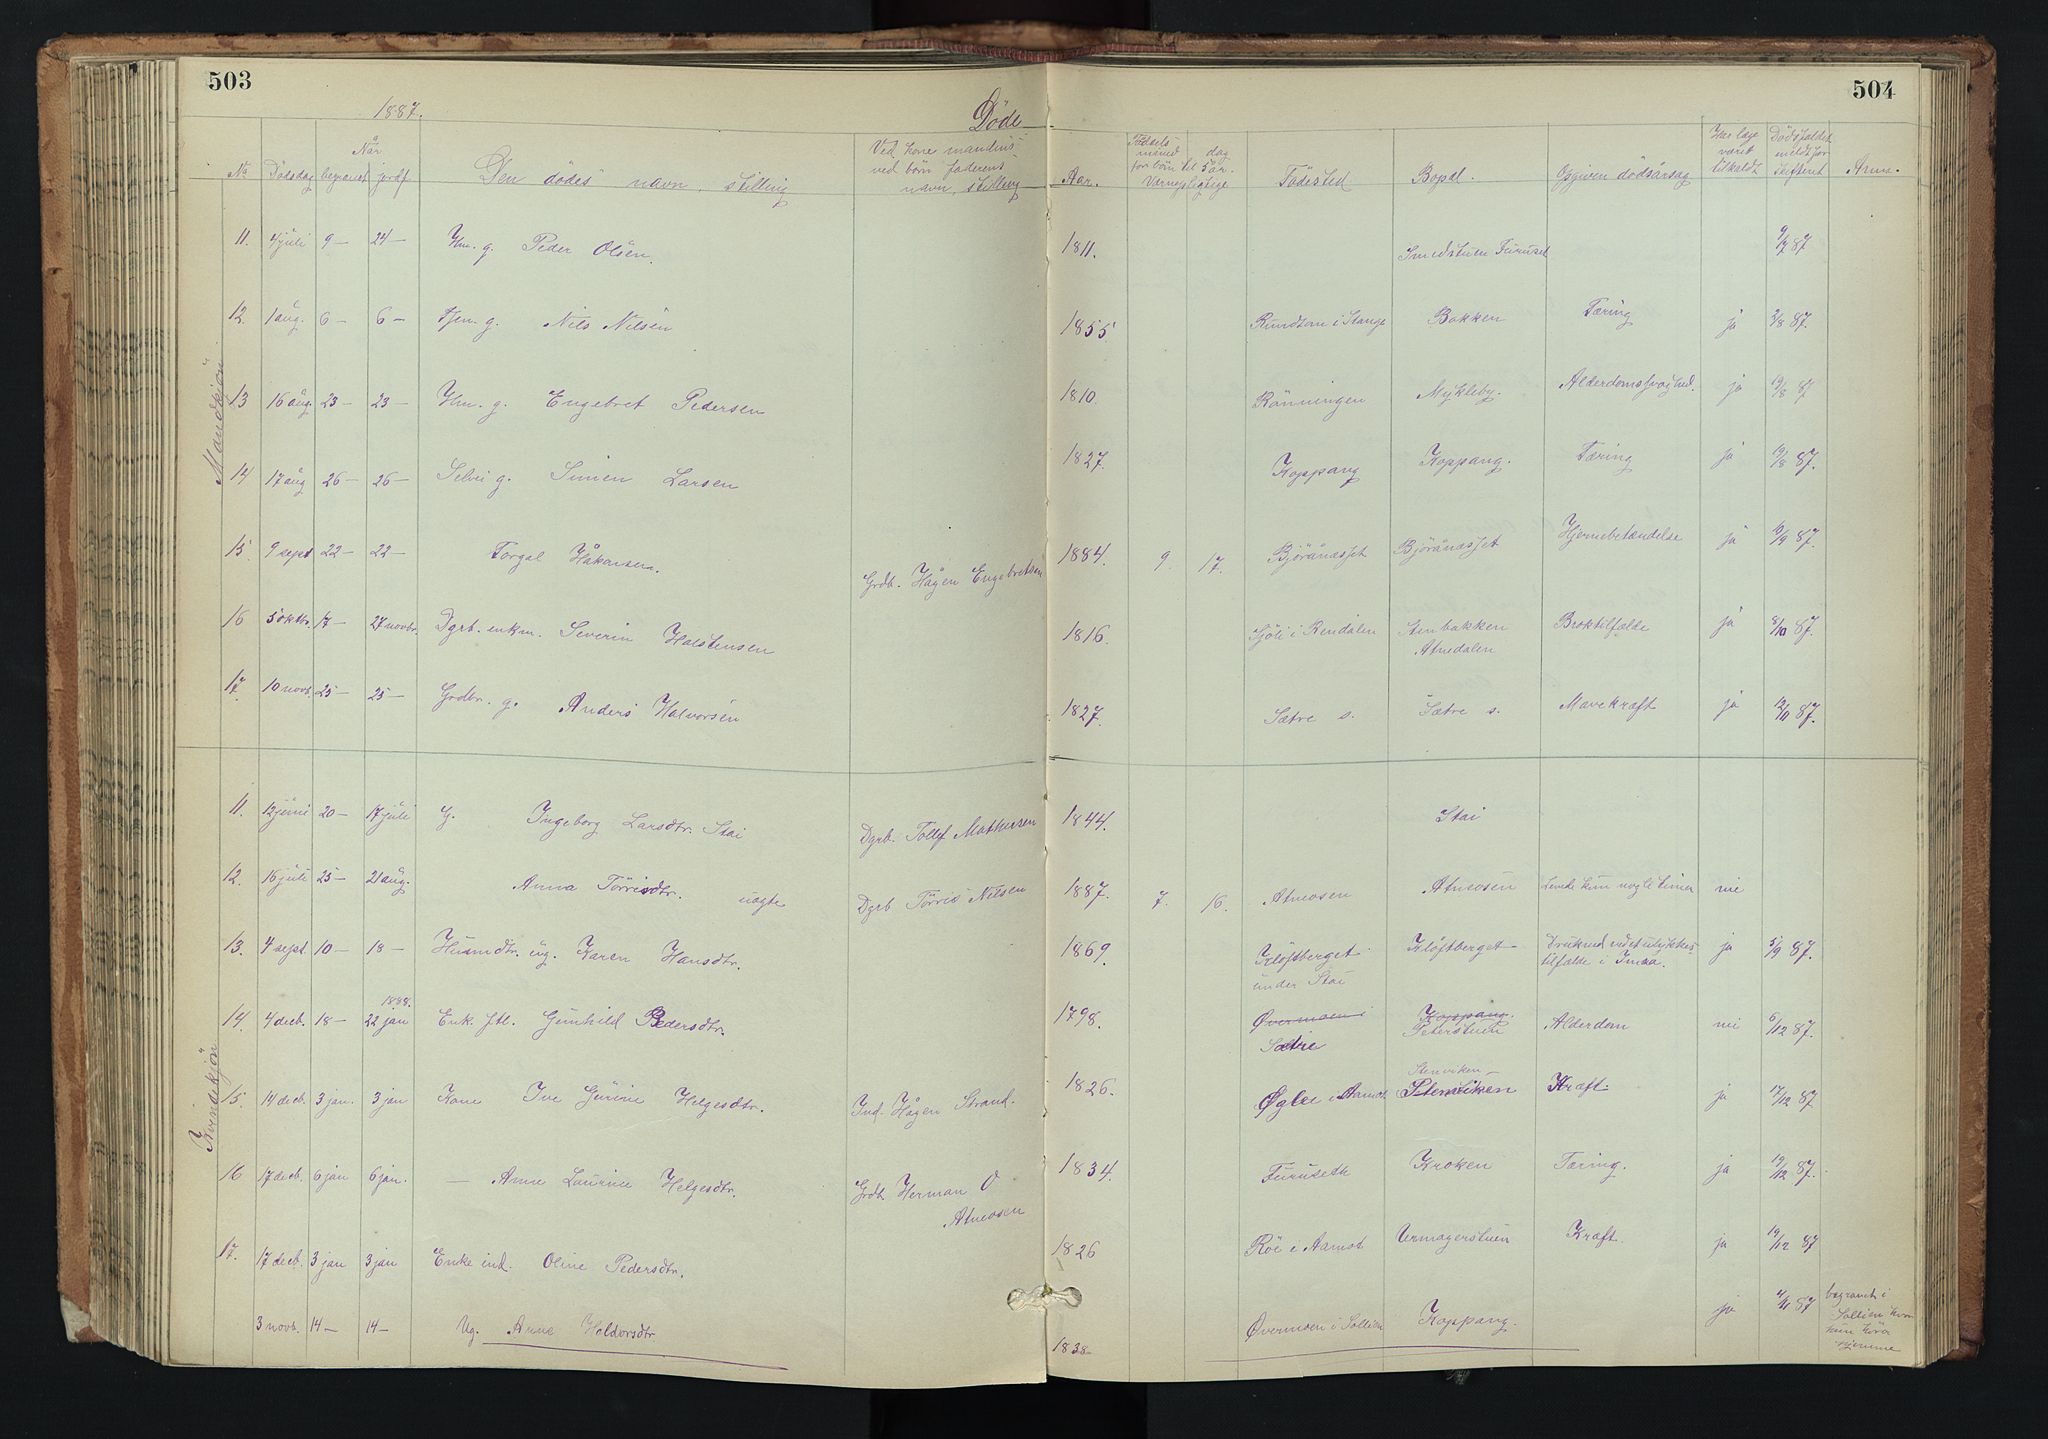 503
504
1887.
Döde
Når
No Dödsdag begravet jordf Den dödes navn, stilling Ved kone mandens ved börn faderens navn, stilling Aar. Födsels maaned dag for börn til 5 år. Værnepligtige Födested Bopæl. Opgiven dödsårsag Var læge været tilkaldt Dödsfaldet meldt for skifteret Anm.
Mandkjön
11. 4 juli 9 — 24 — Hm. g. Peder Olsen. 1811. Smedstuen Furuset 9/7 87
12. 1 aug. 6 — 6 — Tjen. g. Nils Nilsen 1855. Rundtom i Stange Bakken Tæring ja 2/8 87.
13 16 aug. 23 — 23 — Hm. g. Engebret Pedersen 1810. Rönningen Mykleby. Alderdomssvaghed. ja 19/8 87
14 17 aug 26 — 26 — Selvei g. Simen Larsen 1827. Koppang Koppang. Tæring ja 19/8 87.
15 9 sept 22 — 22 — Torgal Håkansen. Grdb. Hågen Engebretsen 1884. 9. 17. Björånæsset Björåneæsset Hjernebetændelse ja 10/9 87.
16 5 oktbr. 17 — 27 novbr. Dgrb. enkm. Severin Halstensen 1816. Sjöli i Rendalen Stenbakken Atnedalen Broktilfælde ja 8/10 87.
17. 10 novb. 25 — 25 — Grdbr. g. Anders Halvorsen 1827. Sætre s. Sætre s. Mavekræft ja 12/11 87.
Kvindekjön
11. 12 juni 20 — 17 juli G. Ingeborg Larsdtr. Stai Dgrb. Tollef Mathesen 1844. Stai
12. 16 juli 25 — 21 aug. Anna Törrisdtr. uægte Dgrb Törris Nilsen 1887. 7. 16. Atneosen Atneosen Levede kun nogle timer nei
13. 4 sept. 10 — 18 — Husmdtr. ug. Karen Hansdtr. 1869. Klöftberget under Stai Klöftberget Druknet ved et ulykkestilfælde i Imsa. ja 5/9 87.
14. 4 decb. 18 — 1888. 22 jan Enk. ftl. Gunhild Pedersdtr. 1798. Övermoen i Sætre Koppang. Peterstuen Alderdom nei 6/12 87.
15. 14 decb. 3 jan. 3 jan Kone Ive Gurine Helgesdtr. Ind. Hågen Strand. 1826. Ögle i Aamot Stenviken — Stenviken Kræft. ja 17/12 87
16 17 decb. 6 jan 6 jan. — Anne Laurine Helgesdtr. Grdb Herman O Atneosen 1834. Furuseth Kroken Tæring. ja 19/12 87.
17. 17 decb. 3 jan 3 jan Enke ind. Oline Pedersdtr. 1826 Röe i Aamot Urmagerstuen Kræft. ja 19/12 87
3 novb. 14 — 14 — Ug. Anne Haldorsdtr 1838 Övermoen i Sollien Koppang. ja 4/11 87 begravet i Sollien hvor hun hörer hjemme